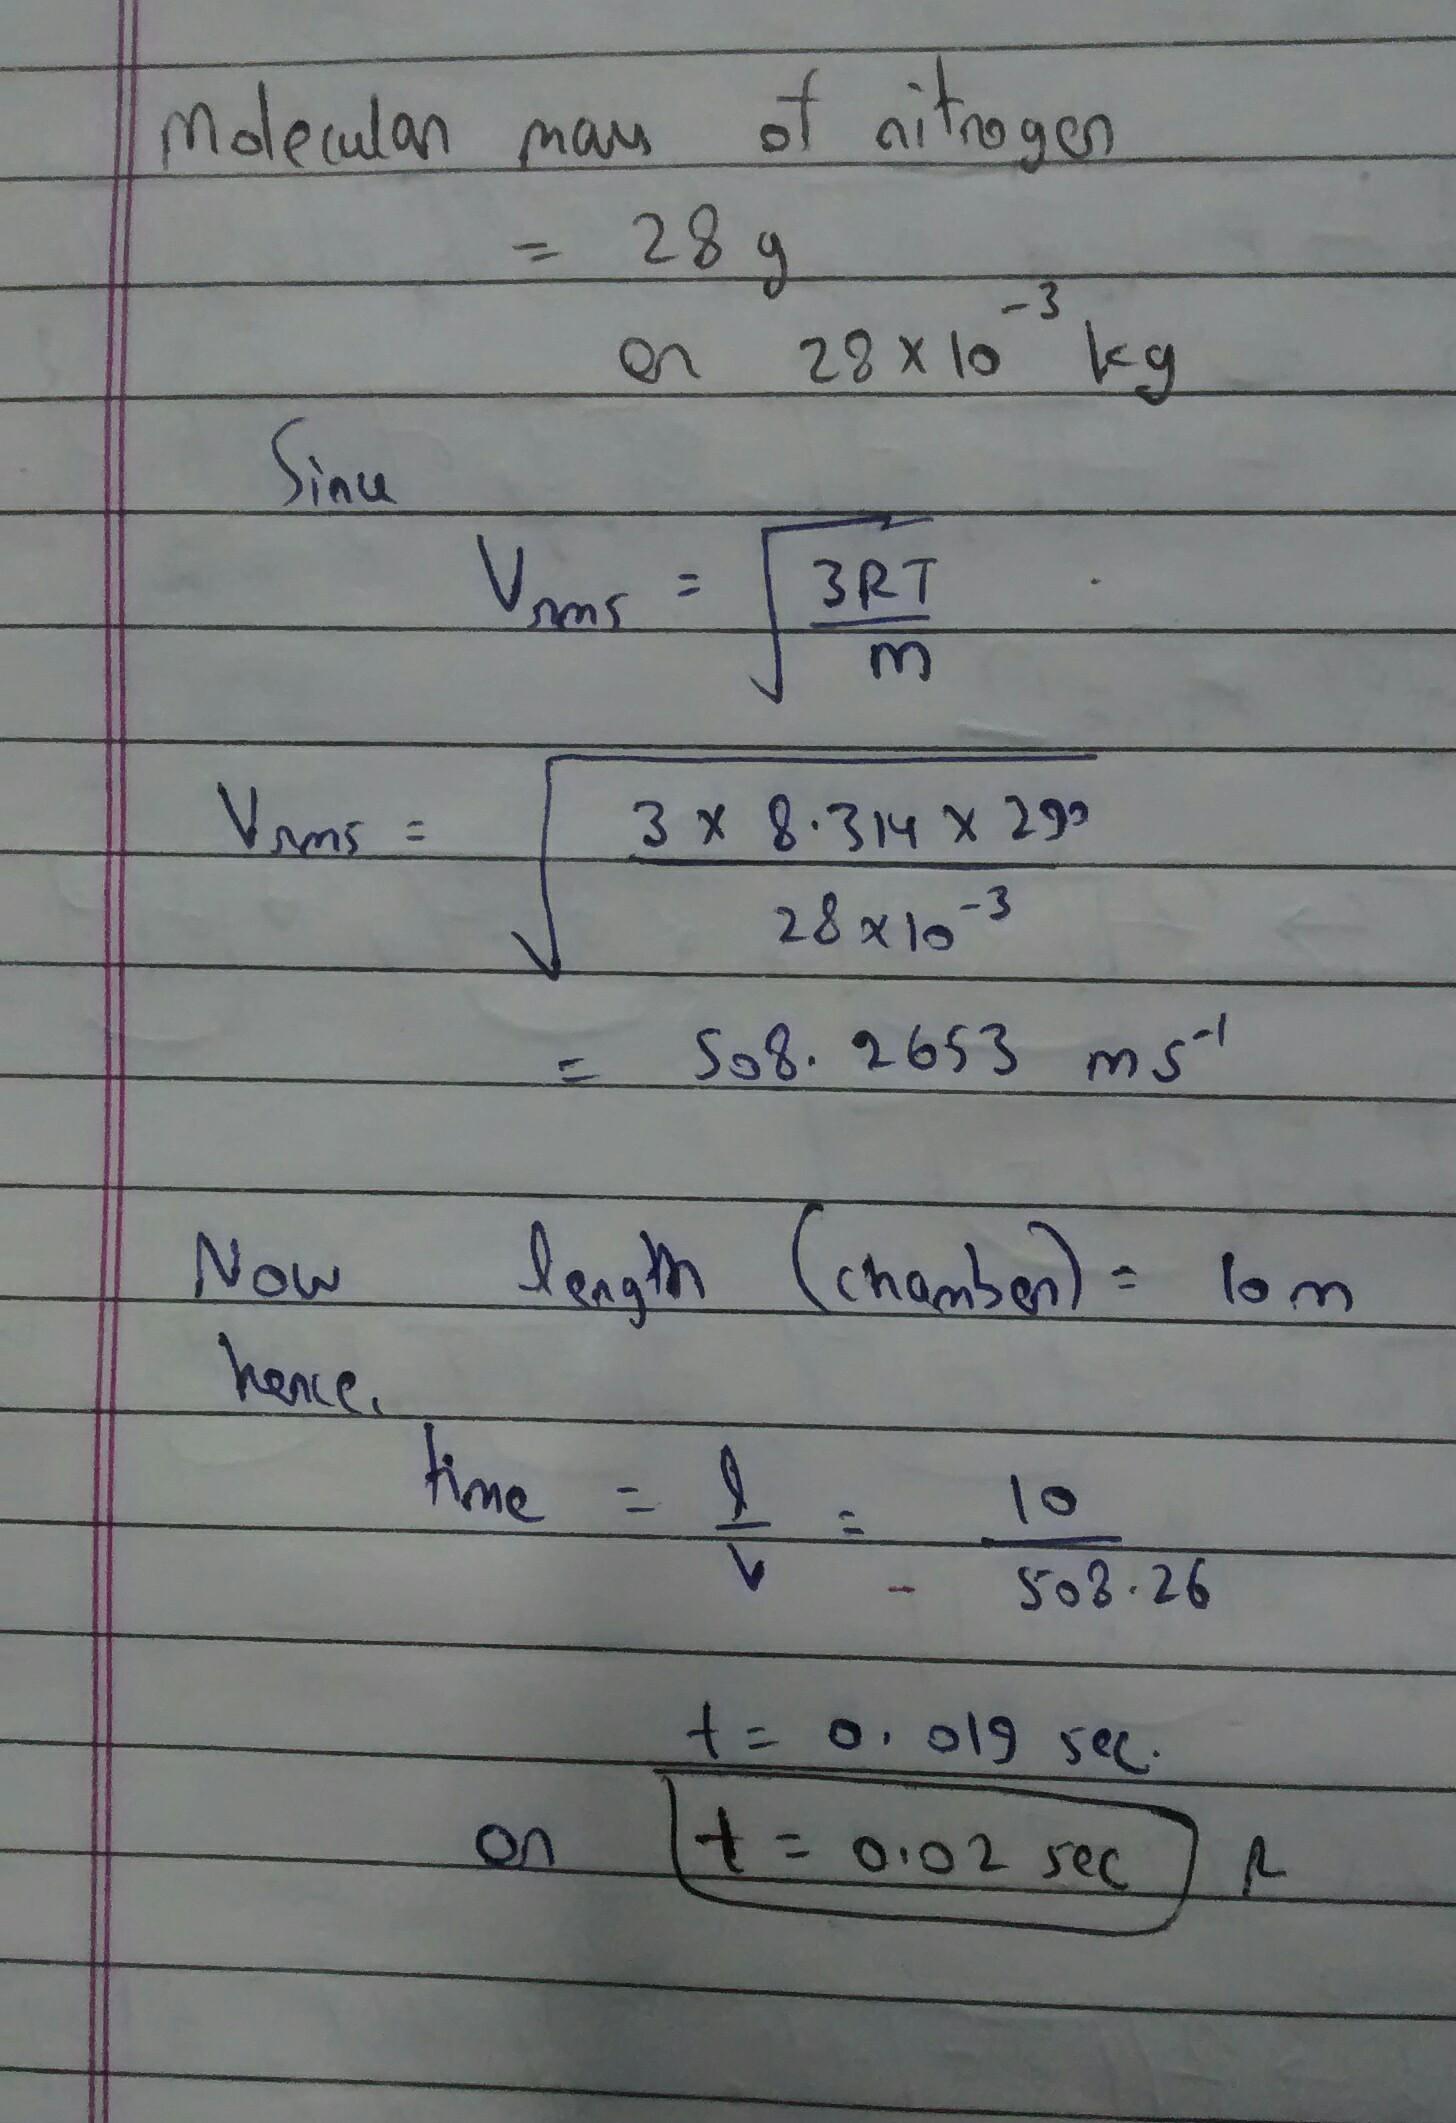 Molecular mass of nitrogen
= 28 g
or 28 x 10⁻³ kg
Since
Vrms = √(3RT/m)
Vrms = √(3 x 8.314 x 299/28 x 10⁻³)
= 508.2653 ms⁻¹
Now length (chamber) = 10 m
hence,
time = l/v = 10/508.26
t = 0.019 sec.
or t = 0.02 sec